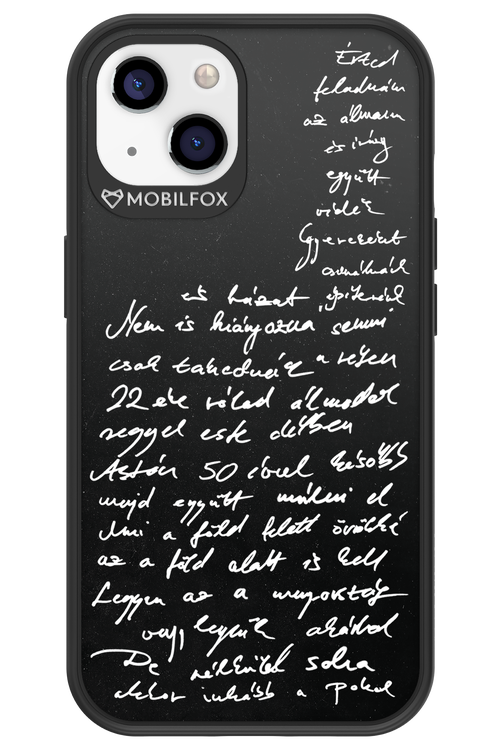 MOBILFOX
Érted
feladnám
az álmom
és így
együtt
vidék
Gyerekeint
csinálnánk
és házat építenénk
Nem is hiányozna semmi
csak takednék a
22 éve rólad álmodok
reggel este délben
Aztán 50 évvel később
majd együtt múlni el
Ami a föld felett örökké
az a föld alatt is kell
Legyen az a mennyország
vagy legyünk akárhol
De nélküled soha
akkor inkább a Pokol